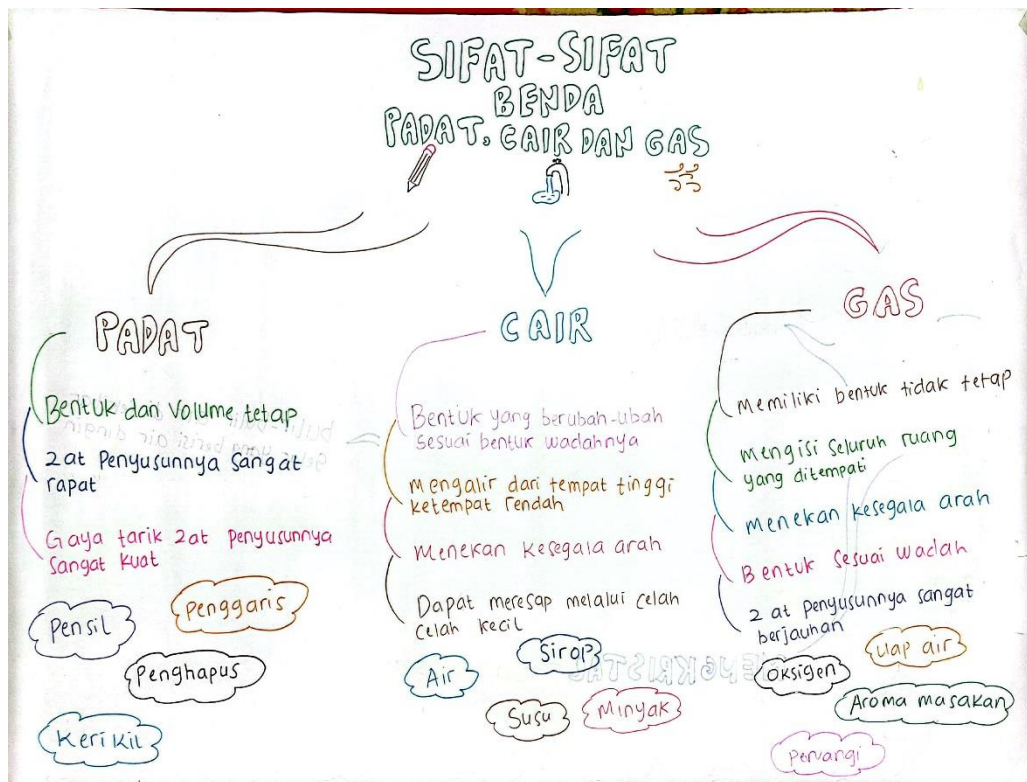 SIFAT-SIFAT
BENDA
PADAT, CAIR DAN GAS
PADAT
Bentuk dan Volume tetap
Zat Penyusunnya Sangat
rapat
Gaya tarik Zat Penyusunnya
Sangat Kuat
Pensil
Penggaris
Penghapus
Kerikil
CAIR
Bentuk yang berubah-ubah
sesuai bentuk wadahnya
Mengalir dari tempat tinggi
ketempat rendah
Menekan Kesegala arah
Dapat meresap melalui celah
celah kecil
Air
Sirop
Susu
Minyak
GAS
Memiliki bentuk tidak tetap
Mengisi Seluruh ruang
yang ditempati
Menekan Kesegala arah
Bentuk Sesuai wadah
Zat penyusunnya sangat
berjauhan
Oksigen
Uap air
Aroma masakan